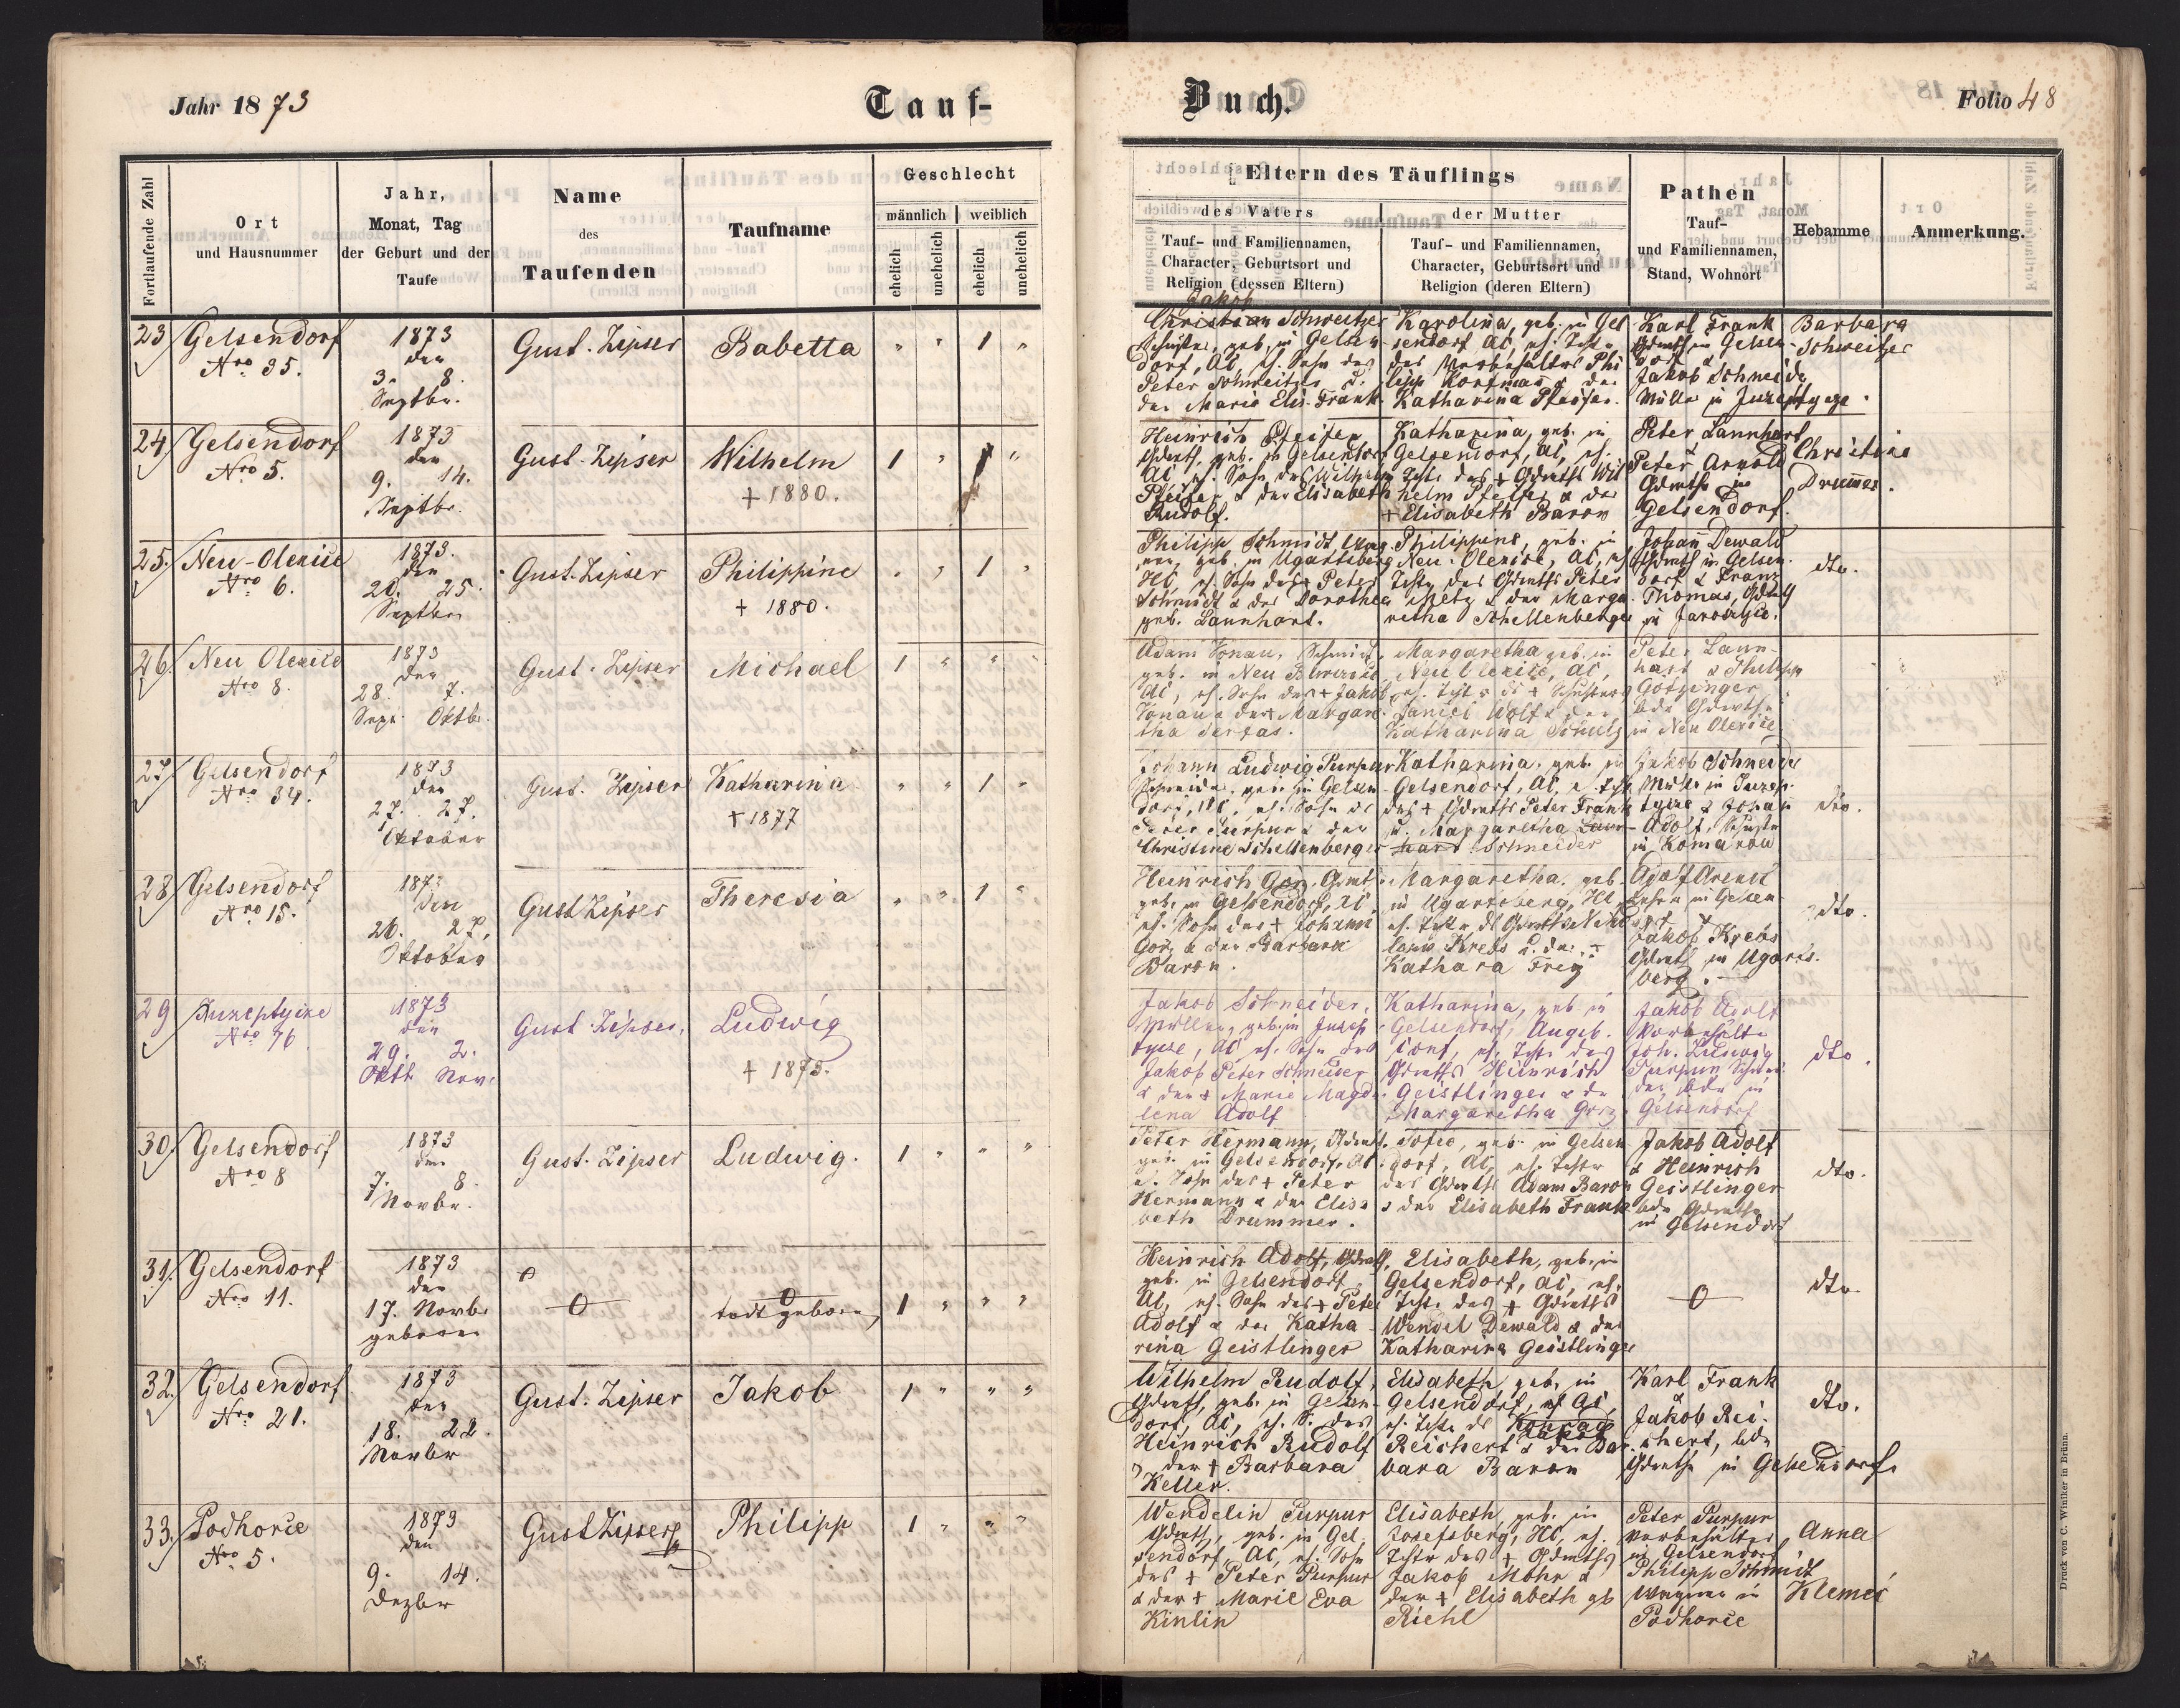 Jahr 1873
Tauf-
Buch.
Folio 48
Fortlaufende Zahl
Ort
und Hausnummer
Jahr,
Monat, Tag
der Geburt und der
Taufe
Name
des
Taufenden
Taufname
Geschlecht
männlich
weiblich
ehelich
unehelich
ehelich
unehelich
Eltern des Täuflings
des Vaters
Tauf- und Familiennamen,
Character, Geburtsort und
Religion (dessen Eltern)
der Mutter
Tauf- und Familiennamen,
Character, Geburtsort und
Religion (deren Eltern)
Pathen
Tauf-
und Familiennamen,
Stand, Wohnort
Hebamme
Anmerkung.
23
Gelsendorf
Nro 35.
1873
den
3. 8.
Septbr.
Gust. Zipser
Babetta
" " 1 "
Jakob
Christian Schweitzer
Schuster, geb. in Gelsen-
dorf, AC, eh. Sohn des
Peter Schweitzer u.
der Marie Elis. Frank
Karolina, geb. in Gel
sendorf AC, eh. Tchtr
des Philipp Kortman & der
Katharina Pfeifer.
Karl Frank
in Gelsen-
dorf &
Jakob Schneider
Müller in
Barbara
Schweitzer
24
Gelsendorf
Nro 5.
1873
den
9. 14.
Septbr.
Gust. Zipser
Wilhelm
+ 1880.
1 " "
Heinrich Pfeifer
geb. in Gelsendorf
AC, eh. Sohn des Wilhelm
Pfeifer & der Elisabeth
Rudolf.
Katharina, geb. in
Gelsendorf, AC, eh.
Tchtr des + Grdwths Wil
helm Pfeifer & der
+ Elisabeth Baron
Peter Lannhart
&
Peter Arnold
Grdwthe in
Gelsendorf.
Christina
Drumer.
25.
Neu-Olexice
Nro 6.
1873.
den
20. 25.
Septbr
Gust. Zipser
Philippine
+ 1880.
" " 1 "
Philipp Schmidt Wag
ner, geb. in Ugartsberg
HC, eh. Sohn des + Peter
Schmidt & der Dorothea
geb. Lannhart.
Philippine, geb. in
Neu-Olexice, AC, eh
Tchtr des Grdwths Peter
Metz & der Marga-
retha Schellenberger
Johan Dewald
Grdwth in Gelsen-
dorf & Franz
Thomas, Grdwth
in
dto.
26.
Neu Olexice
Nro 8.
1873
den
28. 7.
Sept. Oktbr.
Gust. Zipser
Michael
1 " " "
Adam Konau, Schmidt,
geb. in Neu
AC, eh. Sohn des + Jakob
Konau & der + Margare-
tha
Margaretha geb. in
Neu Olexice, AC,
eh. Tchtr ds + Schusters
Daniel Wolf & der
Katharina Schulz
Peter Lann-
hart & Philipp
Götzinger
bde Grdwthe
in Neu Olexice
27
Gelsendorf
Nro 34.
1873
den
27. 27.
Oktober
Gust. Zipser
Katharina
+ 1877
" " 1 "
Johann Ludwig Purpur
Schneider, geb. in Gelsen-
dorf, AC, eh. Sohn ds
Peter Purpur & der
Christine Schellenberger
Katharina, geb. in
Gelsendorf, AC, e. Tchtr
des + Grdwths Peter Frank
u. Margaretha Lann-
hart. Schneider
Jakob Schneider
Müller in
& Johan
Adolf, Schuster
in Komarow
dto.
28
Gelsendorf
Nro 15.
1873
den
26. 27.
Oktober
Gust Zipser
Theresia
" " 1 "
Heinrich Gorz, Grdwt.
geb. in Gelsendorf, AC,
eh. Sohn des + Johann
Gorz & der Barbara
Baron.
Margaretha. geb.
in Ugartsberg, HC,
eh. Tchtr ds Grdwths Niko
laus Krebs u. der +
Kathara Frey
Adolf Arendt
Lehrer in Gelsen-
dorf &
Jakob Krebs
Grdwth in Ugarts-
berg.
dto.
29
Nro 76
1873
den
29. 2.
Oktb. Nov.
Gust Zipser,
Ludwig
+ 1873.
Jakob Schneider,
Müller, geb. in
AC, eh. Sohn des
Jakob Peter Schneider
& der + Marie Magda-
lena Adolf
Katharina, geb in
Gelsendorf, Augsb.
Conf, eh. Tchtr des
Grdwths Heinrich
Geistlinger & der
Margaretha Gorz
Jakob Adolf
Joh. Ludwig
Purpur Schnei-
der bde in
Gelsendorf
dto.
30.
Gelsendorf
Nro 8
1873
den
7. 8.
Novbr.
Gust. Zipser
Ludwig.
1 " " "
Peter Hermann, Grdwth.
geb. in Gelsendorf, AC
e. Sohn des + Peter
Hermann & der Elisa
beth Drummer.
Sofie, geb. in Gelsen
dorf, AC, eh. Tchtr
des Grdwths Adam Baron
& der Elisabeth Frank
Jakob Adolf
& Heinrich
Geistlinger
bde Grdwthe
in Gelsendorf
dto.
31.
Gelsendorf
Nro 11.
1873
den
17. Novbr
geboren
0
todt geboren
1 " " "
Heinrich Adolf, Grdwth,
geb. in Gelsendorf,
AC, eh. Sohn des + Peter
Adolf & der Katha-
rina Geistlinger
Elisabeth, geb. in
Gelsendorf, AC, eh.
Tchtr des + Grdwths
Wendel Dewald & der
Katharina Geistlinger
0
dto.
32.
Gelsendorf
Nro 21.
1873
den
18. 22.
Novbr
Gust. Zipser
Jakob
1 " " "
Wilhelm Rudolf,
Grdwth, geb. in Gelsen-
dorf, AC, eh. S. des
Heinrich Rudolf
& der + Barbara
Keller.
Elisabeth geb. in
Gelsendorf, AC,
eh. Tchtr ds
Reichert & der Bar-
bara Baron
Karl Frank
&
Jakob Rei-
chert, bde
Grdwthe in Gelsendorf.
dto.
33.
Podhorce
Nro 5.
1873
den
9. 14.
Dezbr
Gust Zipser
Philipp
1 " " "
Wendelin Purpur
Grdwth, geb. in Gel-
sendorf, AC, eh. Sohn
des + Peter Purpur
& der + Marie Eva
Kinlin
Elisabeth, geb. in
Josefsberg, HC, eh.
Tchtr des + Grdwths
Jakob Mohr &
der + Elisabeth gb
Riehl
Peter Purpur
in Gelsendorf
Philipp Schmidt
Wagner in
Podhorce
Anna
Klemes
Druck von C. Winiker in Brünn.